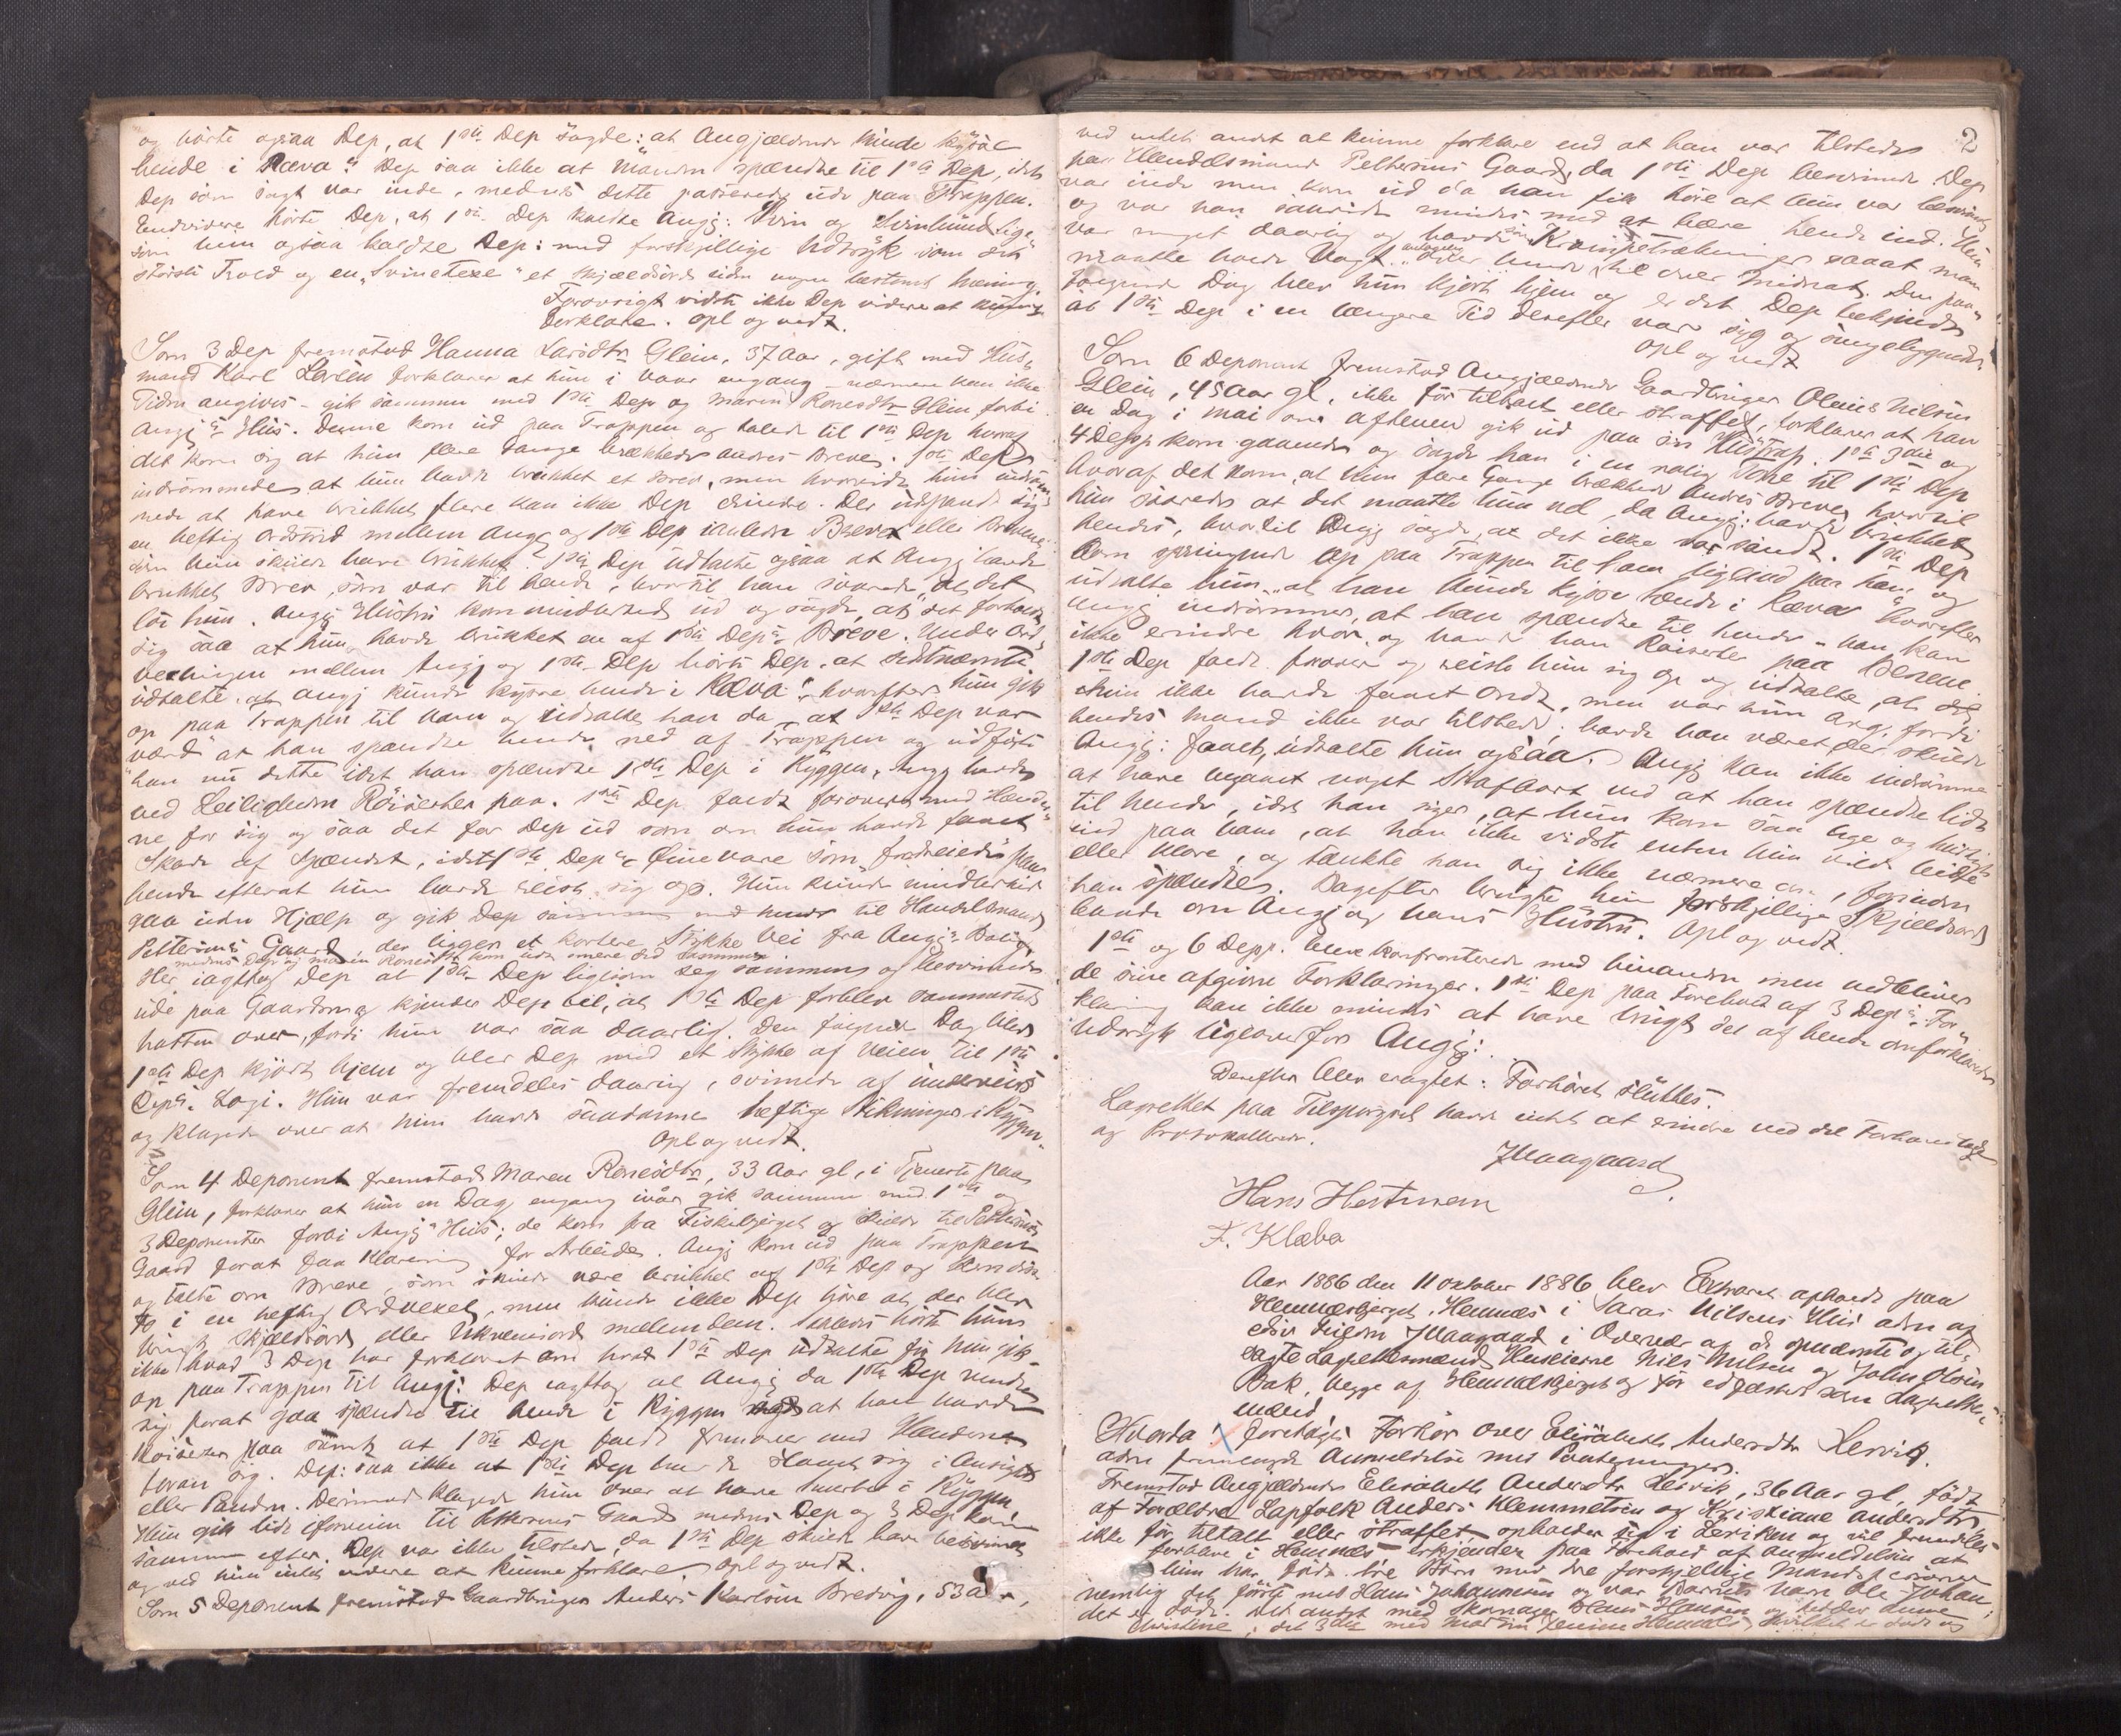 og hørte ogsaa Dep, at 1ste Dep sagde: at Angjældende kunde kysse
hende i Ræva". Dep saa ikke at Manden spændte til 1ste Dep, idet
Dep som sagt var inde, medens dette passerede ude paa Trappen.
Endvidere hørte Dep, at 1ste Dep kaldte Angj: Svin og
som hun ogsaa kaldte Dep: med forskjellige Udtryk som det
største Trold og en "Svinetexe" et Skjældsord uden nogen bestemt Mening.
Forøvrigt vidste ikke Dep videre at kunne
forklare. Opl og vedt.
Som 3 Dep fremstod Hanna Larsdtr Glein, 37 Aar, gift med Hus-
mand Karl Larsen forklarer at hun i Vaar engang - nærmere kan ikke
Tiden angives - gik sammen med 1ste Dep og Maren Konesdtr Glein forbi
Angj's Hus. Denne kom ud paa Trappen og talede til 1ste Dep hvoraf
det kom sig at hun flere Gange brækkede andres Breve. 1ste Dep
indrømmede at hun havde brækket et Brev, men hvorvidt hun indrøm-
mede at have brækket flere kan ikke Dep erindre. Der udspandt sig
en heftig Ordstrid mellem Angj og 1ste Dep Brevet eller Brevene
som hun skulde have brækket. 1ste Dep udtalte ogsaa at Angj havde
brækket Brev, som var til hende, hvortil han svarede, at det
løi hun. Angj's Hustru kom imidlertid ud og sagde, at det forholdt
sig saa at hun havde brækket en af 1ste Dep's Breve. Under Ord-
vexlingen mellem Angj og 1ste Dep hørte Dep, at sidstnævnte
udtalte, at Angj kunde kysse hende i Ræva", hvorefter hun gik
op paa Trappen til ham og udtalte han da at 1ste Dep var
værd" at han spændte hende ned af Trappen og udførte
han nu dette idet han spændte 1ste Dep i Ryggen. Angj havde
ved Leiligheden Röisester paa. 1ste Dep faldt forover med Hænder-
ne for sig og saa det for Dep ud som om hun havde faaet
Skade af Spændet, idet 1ste Dep's Øine vare som fordreiede paa
hende efterat hun havde reist sig op. Hun kunde imidlertid
gaa uden Hjælp og gik Dep sammen med hende til Handelsmand
Pettersens Gaard, der ligger et kortere Stykke Vei fra Angj's Bolig,
medens Dep og Maren Konesdtr kom lidt senere did sammen
Her iagttog Dep at 1ste Dep ligesom seg sammen og besvimede
ude paa Gaarden og kjender Dep til, at 1ste Dep forblev sammesteds
natten over, fordi hun var saa daarlig. Den følgende Dag blev
1ste Dep kjørt hjem og blev Dep med et Stykke af Veien til 1ste
Dep's Logi. Hun var fremdeles daarlig, svimede af underveis
og klagede over at hun havde saadanne heftige Stikninger i Ryggen.
Opl og vedt.
Som 4 Deponent fremstod Maren Konesdtr, 33 Aar gl, i Tjeneste paa
Glein, forklarer at hun en Dag engang ivår gik sammen med 1ste og
3 Deponenter forbi Angj's Hus; de kom fra Fiskebjerget og skulde til Pettersens
Gaard forat faa Klarering for Arbeide. Angj kom ud paa Trappen
og talte om Breve, som skulde være brækket af 1ste Dep og kom disse
to i en heftig Ordvexel, men kunde ikke Dep høre at der blev
brugt Skjældsord eller Ukvemsord mellem dem. Saaledes hørte hun
ikke hvad 3 Dep har forklaret om hvad 1ste Dep udtalte før hun gik
op paa Trappen til Angj: Dep iagttog at Angj da 1ste Dep vendte
sig forat gaa spændte til hende i Ryggen at han havde
Röisester paa samt at 1ste Dep faldt forover med Hænderne
foran sig. Dep: saa ikke at 1ste Dep havde slaaet sig i Ansigtet
eller Panden. Derimod klagede hun over at have Smerter i Ryggen
Hun gik lidt iforveien til Pettersens Gaard medens Dep og 3 Dep kom
sammen efter. Dep var ikke tilstede, da 1ste Dep skulde have besvimet
og ved hun intet videre at kunne forklare. Opl og vedt.
Som 5 Deponent fremstod Gaardbruger Anders Karlsen Bredvig, 53 Aar,
2
ved intet andet at kunne forklare end at han var tilstede
paa Handelsmand Pettersens Gaard, da 1ste Dep besvimede. Dep
var inde men kom ud da han fik høre at hun var besvimet
og var han saavidt mindes med at bære hende ind. Hun
var meget daarlig og havde Krampetrækninger saaat man
maatte holde Vagt over hende til over Midnat. Den paa-
følgende Dag blev hun kjørt hjem og er det Dep bekjendt
at 1ste Dep i en længere Tid derefter var syg og sengeliggende
Opl og vedt
Som 6 Deponent fremstod Angjældende Gaardbruger Oluis Nilsen
Glein, 45 Aar gl, ikke før tiltalt eller straffet, forklarer at han
en Dag i Mai om Aftenen gik ud paa sin Hustrap. 1ste 3die og
4 Dep: kom gaaende og sagde han i en rolig Tone til 1ste Dep
hvoraf det kom, at hun flere Gange brækkede Andres Breve, hvortil
hun svarede at det maatte hun vel da Angj: havde brækket
hendes, hvortil Angj sagde, at det ikke var sandt. 1ste Dep
kom springende op paa Trappen til ham ligeind paa ham og
udtalte hun, "at han kunde kysse hende i Ræva" hvorefter
Angj indrømmer, at han spændte til hende - han kan
ikke erindre hvor, og havde han Röisester paa Benene.
1ste Dep faldt forover og reiste hun sig op og udtalte, at
hun ikke havde faaet ondt, men var hun arg, fordi
hendes Mand ikke var tilstede; havde han været der skulde
Angj: faaet, udtalte hun ogsaa. Angj kan ikke indrømme
at have begaaet noget Strafbart ved at han spændte lidt
til hende, idet han siger, at hun kom saa lige og hidsigt
ind paa ham, at han ikke vidste enten hun vilde bide
eller klore, og tænkte han sig ikke nærmere om, førinden
han spændte. Dagefter brugte hun forskjellige Skjældsord
baade om Angj og hans Hustru. Opl og vedt.
1ste og 6 Depp. blev konfronterede med hinanden men vedbliver
de sine afgivne Forklaringer. 1ste Dep paa Forehold af 3 Dep's For-
klaring kan ikke mindes at have brugt det af hende omforklarede
Udtryk ligeoverfor Angj:
Derefter blev eragtet: Forhøret sluttes.
Lagrettet paa Tilspørgsel havde intet at erindre ved det Forhandlede
og Protokollerede.
J Maagaard
Hans Hestmann
F. Klæbo
Aar 1886 den 11 Oktober 1886 blev Extraret afholdt paa
Hemnæsberget, Hemnæs i Saras Nilsens Hus adm af
edsv Fuldm J Maagaard i Overvær af de opnævnte og til-
sagte Lagrettesmænd Huseierne Niels Nilsen og John Olsen
Bak, begge af Hemnæsberget og før edfæstede som Lagrettes-
mænd
Hvorda foretoges Forhør over Elisabeth Andersdtr Lervik.
Adm fremlagde Anmeldelse med Paategninger.
Fremstod Angjældende Elisabeth Andersdtr Lervik, 36 Aar gl, født
af Forældre Lapfolk Anders Klemmetsen og Kristiane Andersdtr
ikke før tiltalt eller straffet opholder sig i Lerviken og vil fremdeles
forblive i Hemnæs - erkjender paa Forehold af Anmeldelsen at
hun har født tre Børn med tre forskjellige Mandspersoner
nemlig det første med Hans Johannesen og var Barnets Navn Ole Johan;
det er dødt. Det andet med Skomager Hans Hansen og hedder denne
Christine, det 3die med Martin Jensen Hemnæs, hvilket er dødt og